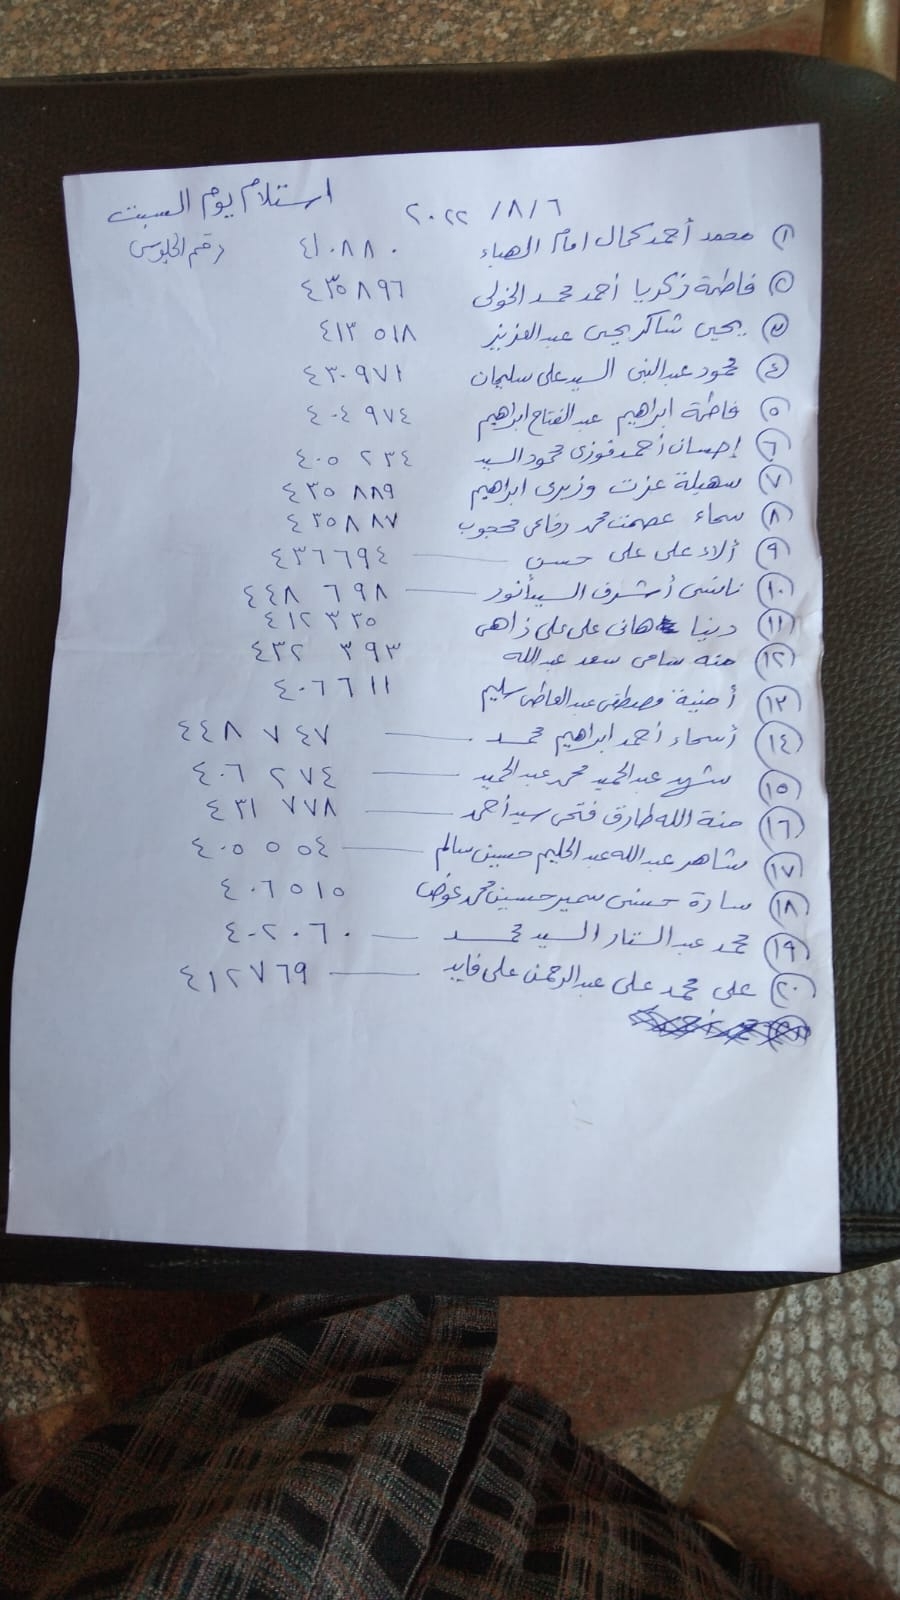 استلام يوم السبت ٢٠٢٢ /٨/٦
رقم الجلوس
١ محمد أحمد كمال امام الهباء ٤١٠٨٨٠
٢ فاطمة زكريا أحمد محمد الخولى ٤٣٥٨٩٦
٣ يحيى شاكر يحيى عبدالعزيز ٤١٣٥١٨
٤ محمود عبدالنبى السيد على سليمان ٤٣٠٩٧١
٥ فاطمة ابراهيم عبدالفتاح ابراهيم ٤٠٤٩٧٤
٦ إحسان أحمد فوزى محمود السيد ٤٠٥٢٣٤
٧ سهيلة عزت وزيرى ابراهيم ٤٣٥٨٨٩
٨ سماء عصمت محمد رفاعى محجوب ٤٣٥٨٨٧
٩ آلاء على على حسن ٤٣٦٦٩٤
١٠ نانسى أشرف السيد أنور ٤٤٨٦٩٨
١١ دنيا هانى على على زاهى ٤١٢٣٣٥
١٢ منه سامى سعد عبدالله ٤٣٢٣٩٣
١٣ أمنية مصطفى عبدالعاطى سليم ٤٠٦٦١١
١٤ أسماء أحمد ابراهيم محمد ٤٤٨٧٤٧
١٥ شهد عبدالحميد محمد عبدالحميد ٤٠٦٢٧٤
١٦ منة الله طارق فتحى سيد أحمد ٤٣١٧٧٨
١٧ شاهر عبدالله عبدالحليم حسين سالم ٤٠٥٥٥٤
١٨ سارة حسنى سمير حسين محمد عوض ٤٠٦٥١٥
١٩ محمد عبدالستار السيد محمد ٤٠٢٠٦٠
٢٠ على محمد على عبدالرحمن على فايد ٤١٢٧٦٩